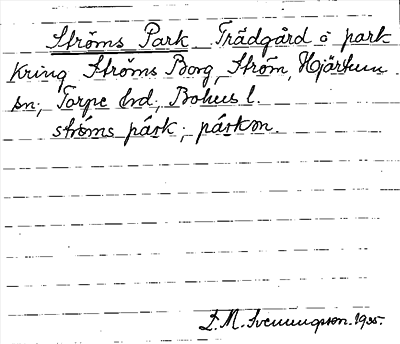 Ströms Park Trädgård o park
kring Ströms Borg, Ström, Hjärtum
sn, Torpe hd, Bohus l.
ströms párk; párkən.
F. M. Svenungsson. 1935.